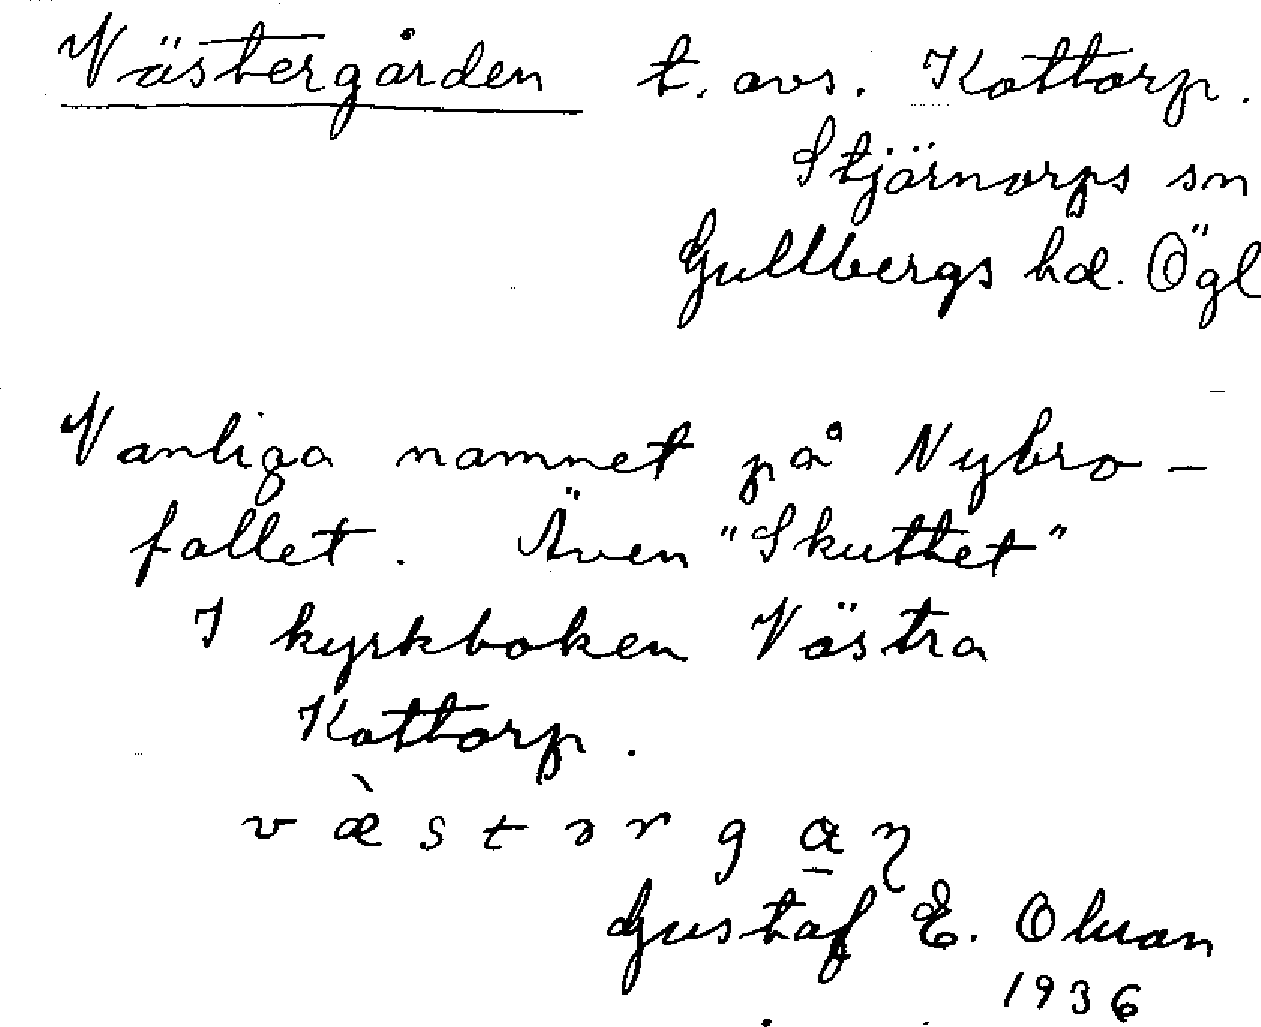 Västergården t. avs. Kattorp.
Stjärnorps sn
Gullbergs hd. Ögl
Vanliga namnet på Nybro-
fallet. Även "Skuttet"
I kyrkboken Västra
Kattorp.
v æ̀ s t ə r g a̠ ɳ
Gustaf E. Olsson
1936